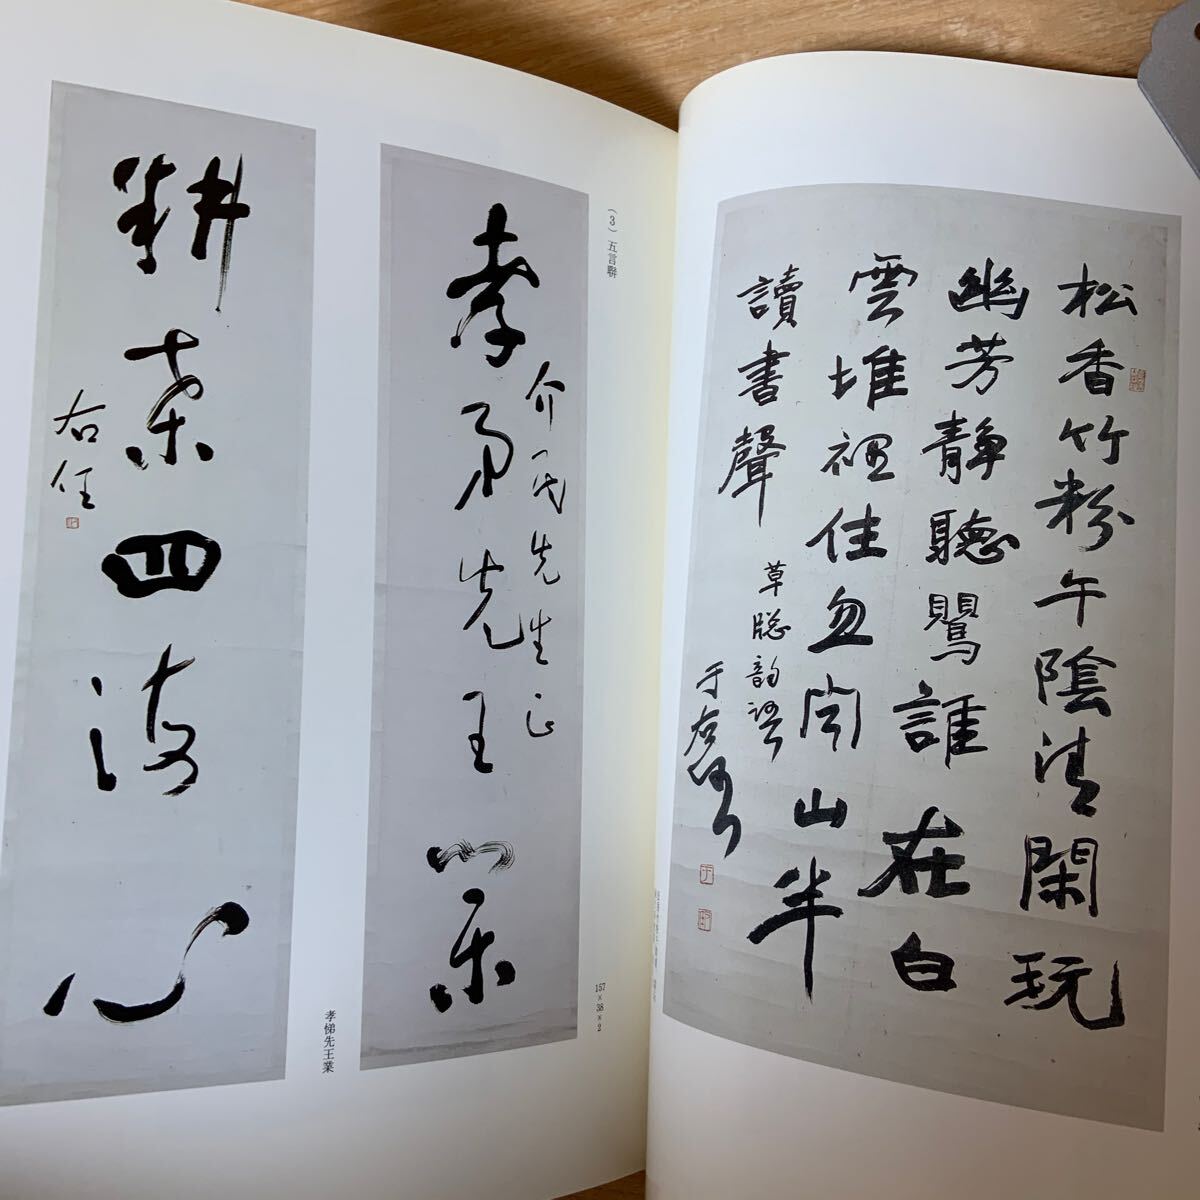 松香竹粉午陰清閑玩
幽芳靜聽鸎誰在白
雲堆裡住忽聞山半
讀書聲
草牕韵語
于右任
(3) 五言聯
介民先生正
孝弟先王業
157×38×2
孝悌先王業
耕桑四海心
右任